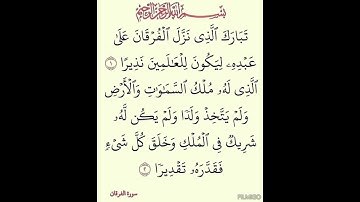 بِسْمِ اللَّهِ الرَّحْمَٰنِ الرَّحِيمِ
تَبَارَكَ ٱلَّذِى نَزَّلَ ٱلْفُرْقَانَ عَلَىٰ
عَبْدِهِۦ لِيَكُونَ لِلْعَـٰلَمِينَ نَذِيرًا ١
ٱلَّذِى لَهُۥ مُلْكُ ٱلسَّمَـٰوَٰتِ وَٱلْأَرْضِ
وَلَمْ يَتَّخِذْ وَلَدًا وَلَمْ يَكُن لَّهُۥ
شَرِيكٌ فِى ٱلْمُلْكِ وَخَلَقَ كُلَّ شَىْءٍ
فَقَدَّرَهُۥ تَقْدِيرًا ٢
سورة الفرقان
FILMIGO